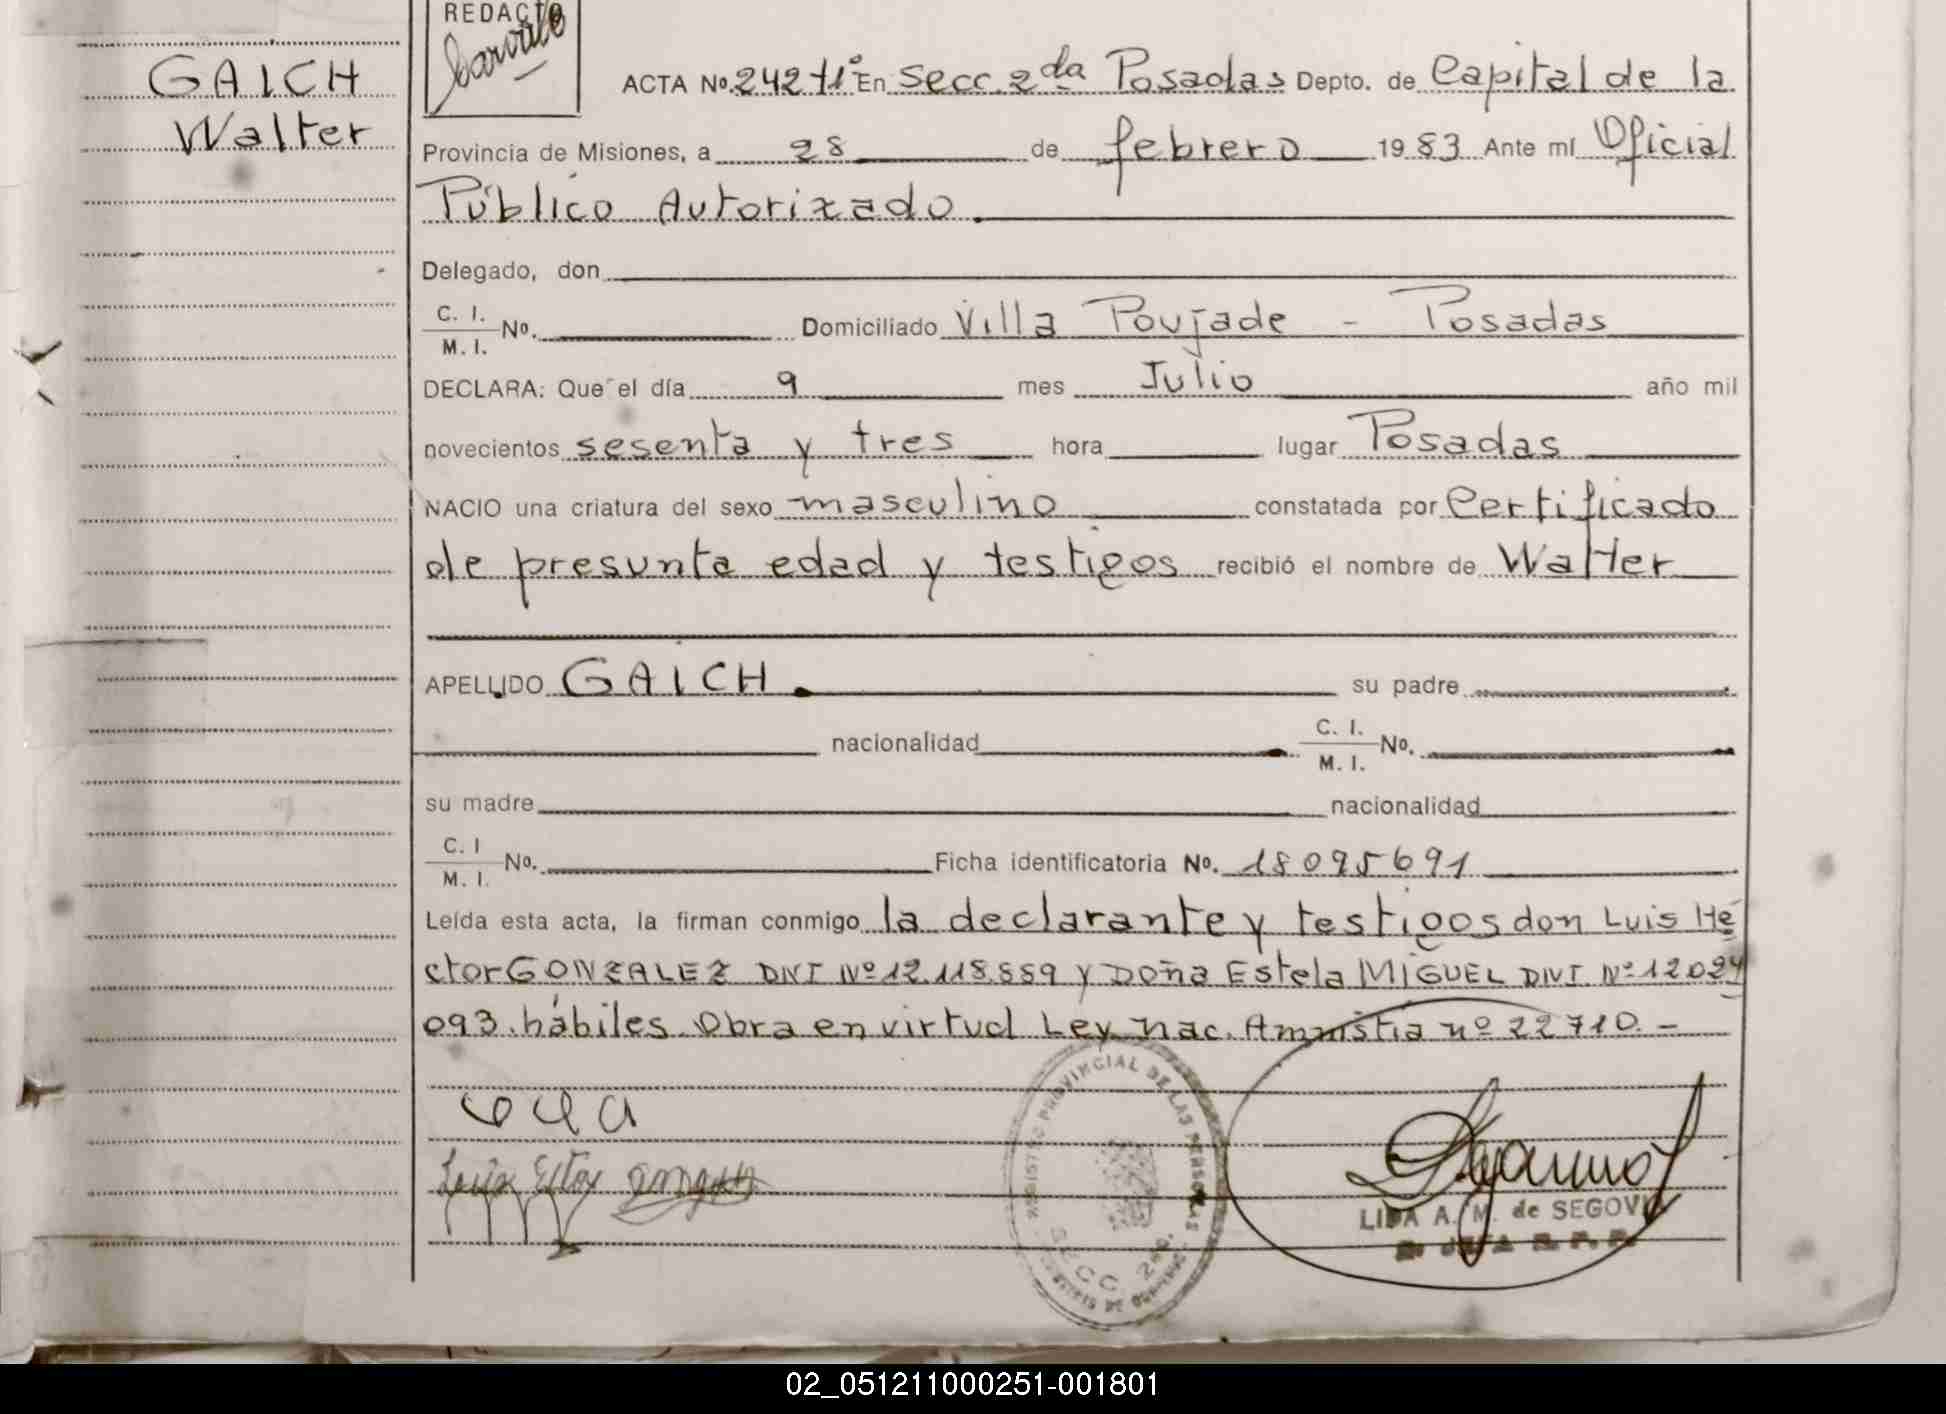 GAICH
Walter
REDACTO
ACTA No. 24271° En Secc. 2da Posadas Depto. de Capital de la
Provincia de Misiones, a 28 de febrero 1983 Ante mí Oficial
Público Autorizado.
Delegado, don
C. I.
M. I. No. Domiciliado Villa Poujade - Posadas
DECLARA: Que el día 9 mes Julio año mil
novecientos sesenta y tres hora lugar Posadas
NACIO una criatura del sexo masculino constatada por Certificado
de presunta edad y testigos recibió el nombre de Walter
APELLIDO GAICH. su padre
nacionalidad C. I.
M. I. No.
su madre nacionalidad
C. I
M. I. No. Ficha identificatoria No. 18095691
Leída esta acta, la firman conmigo la declarante y testigos don Luis Hé
ctor GONZALEZ DNI Nº 12.118.889 y Doña Estela MIGUEL DNI. Nº 12024
093. hábiles. Obra en virtud Ley nac. Amnistia nº 22710. -
REGISTRO PROVINCIAL DE LAS PERSONAS
SECC. 2da.
LIDA A. M. de SEGOVIA
02_051211000251-001801